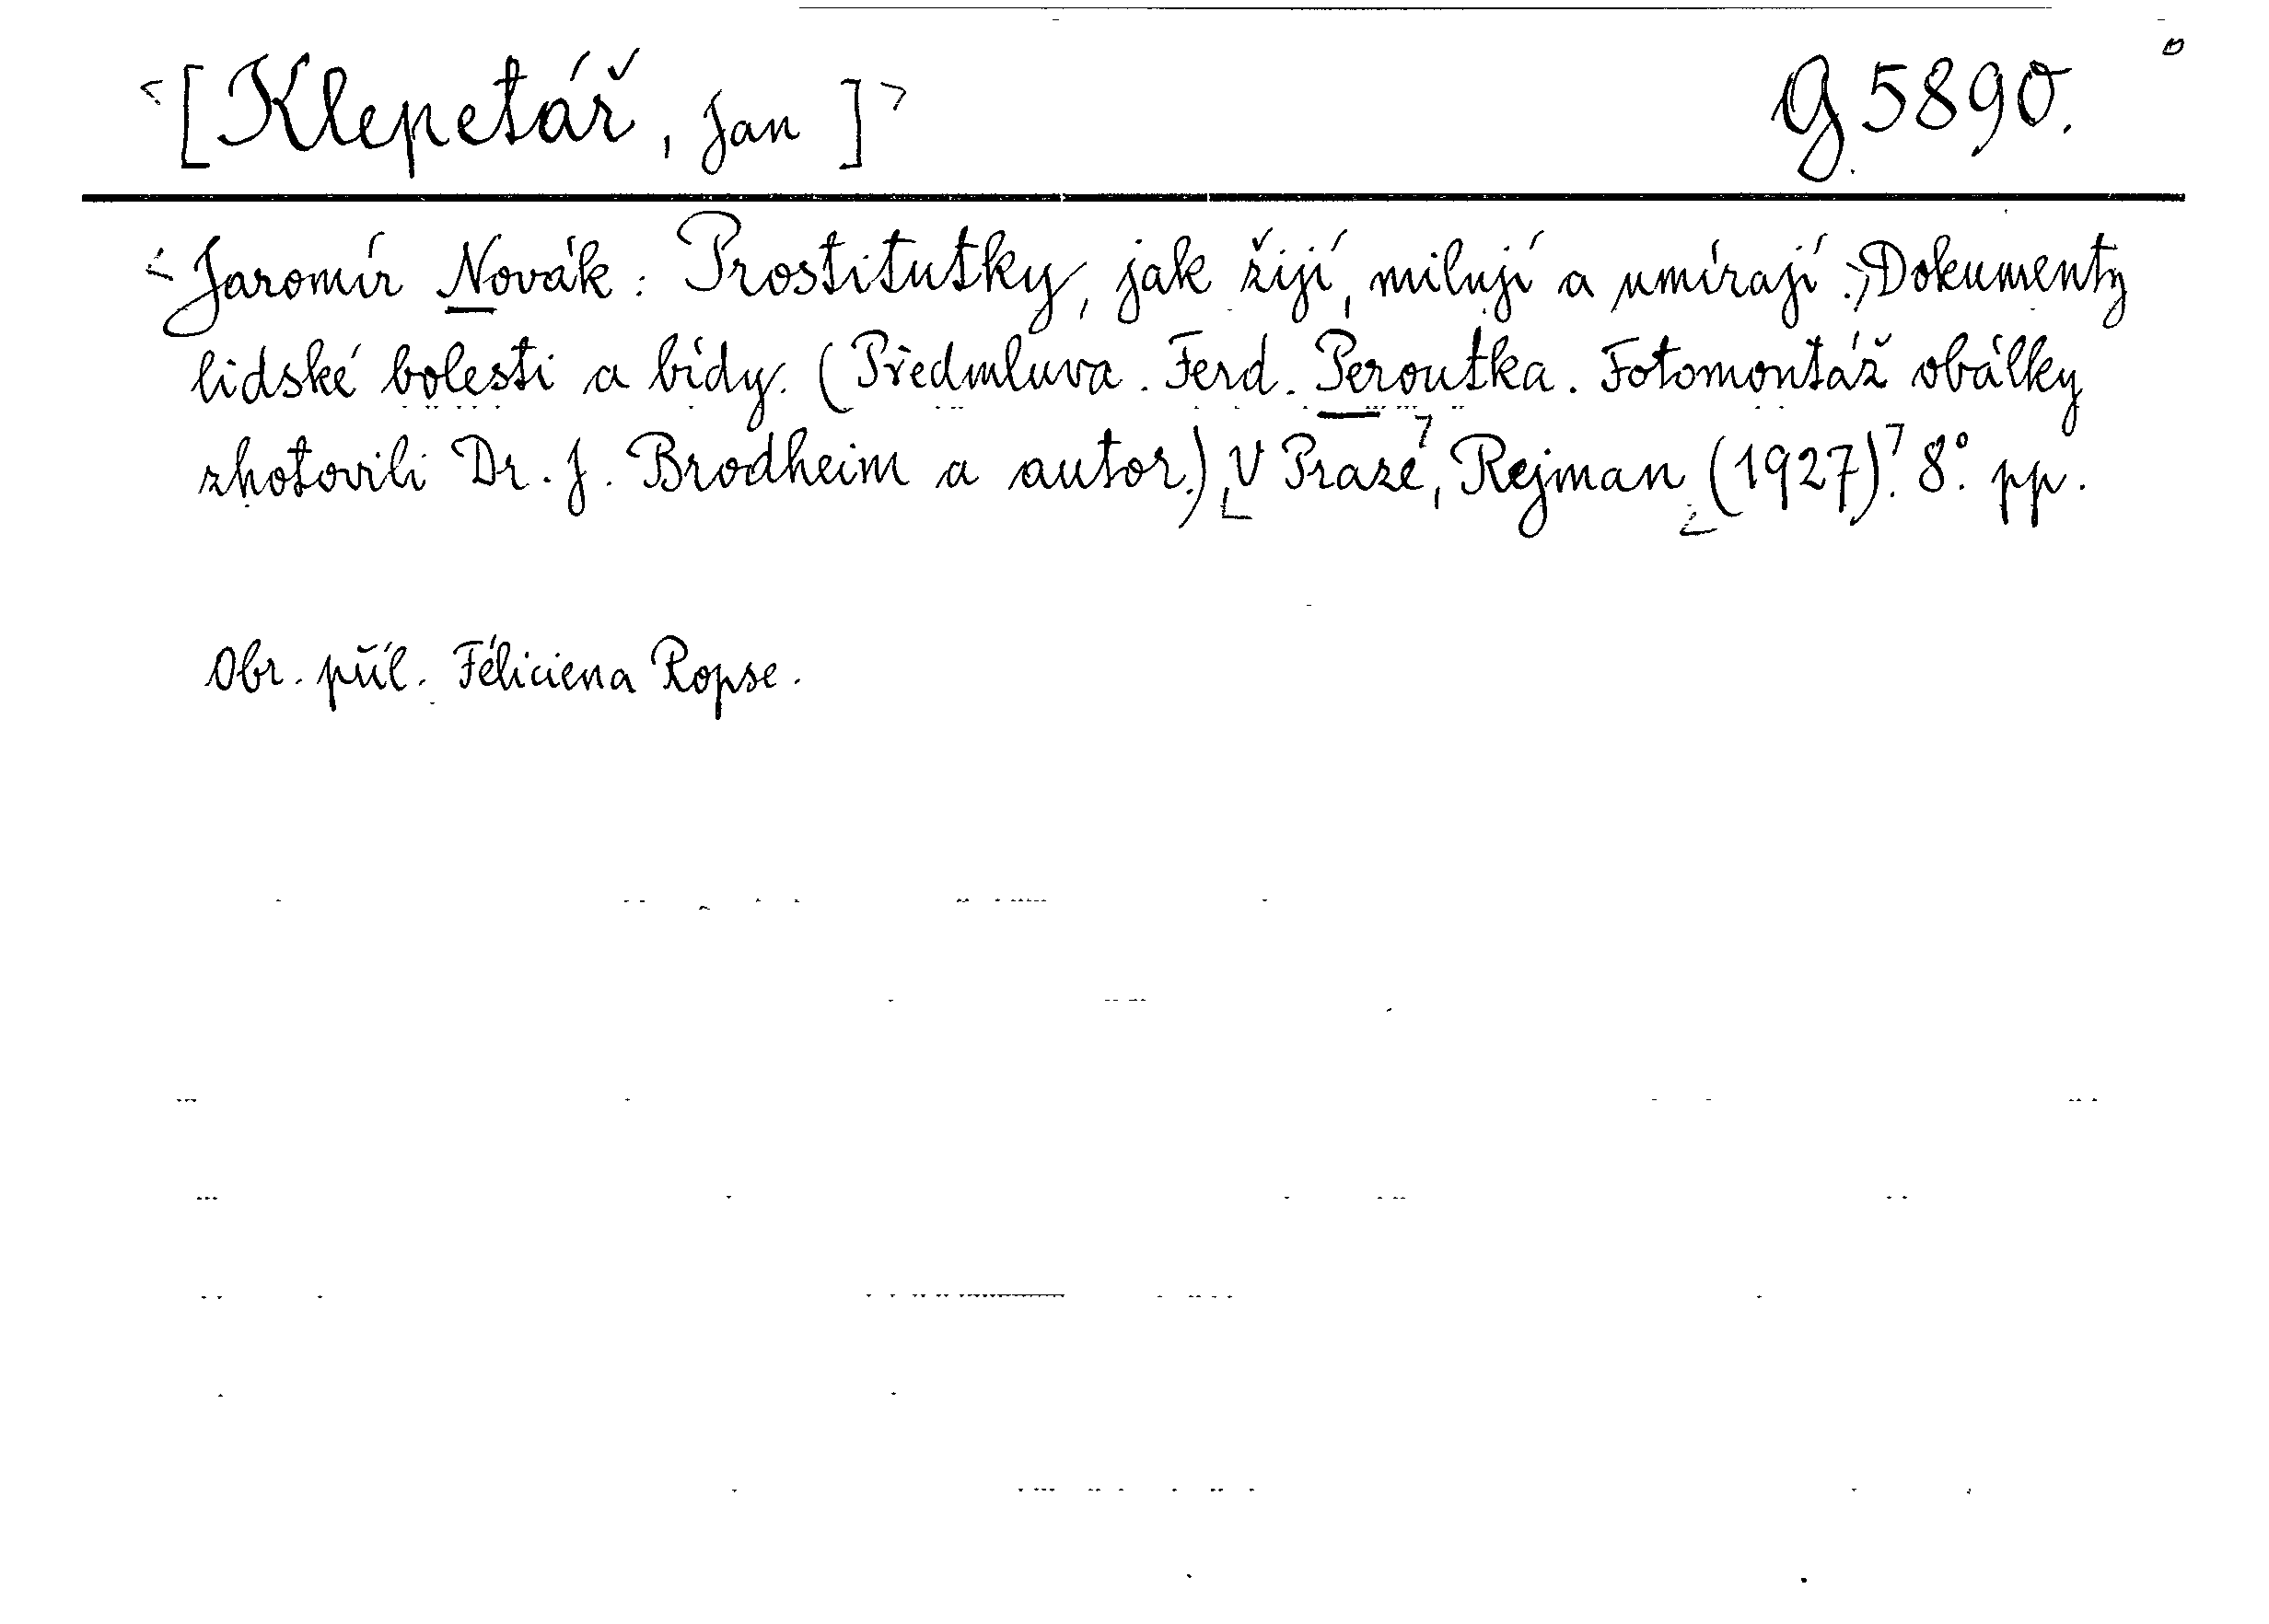 [Klepetář, Jan] G 5890.
Jaromír Novák: Prostitutky, jak žijí, milují a umírají. Dokumenty
lidské bolesti a bídy. (Předmluva. Ferd. Peroutka. Fotomontáž obálky
zhotovili Dr. J. Brodheim a autor.) V Praze, Rejman (1927). 8°. pp.
Obr. příl. Féliciena Ropse.